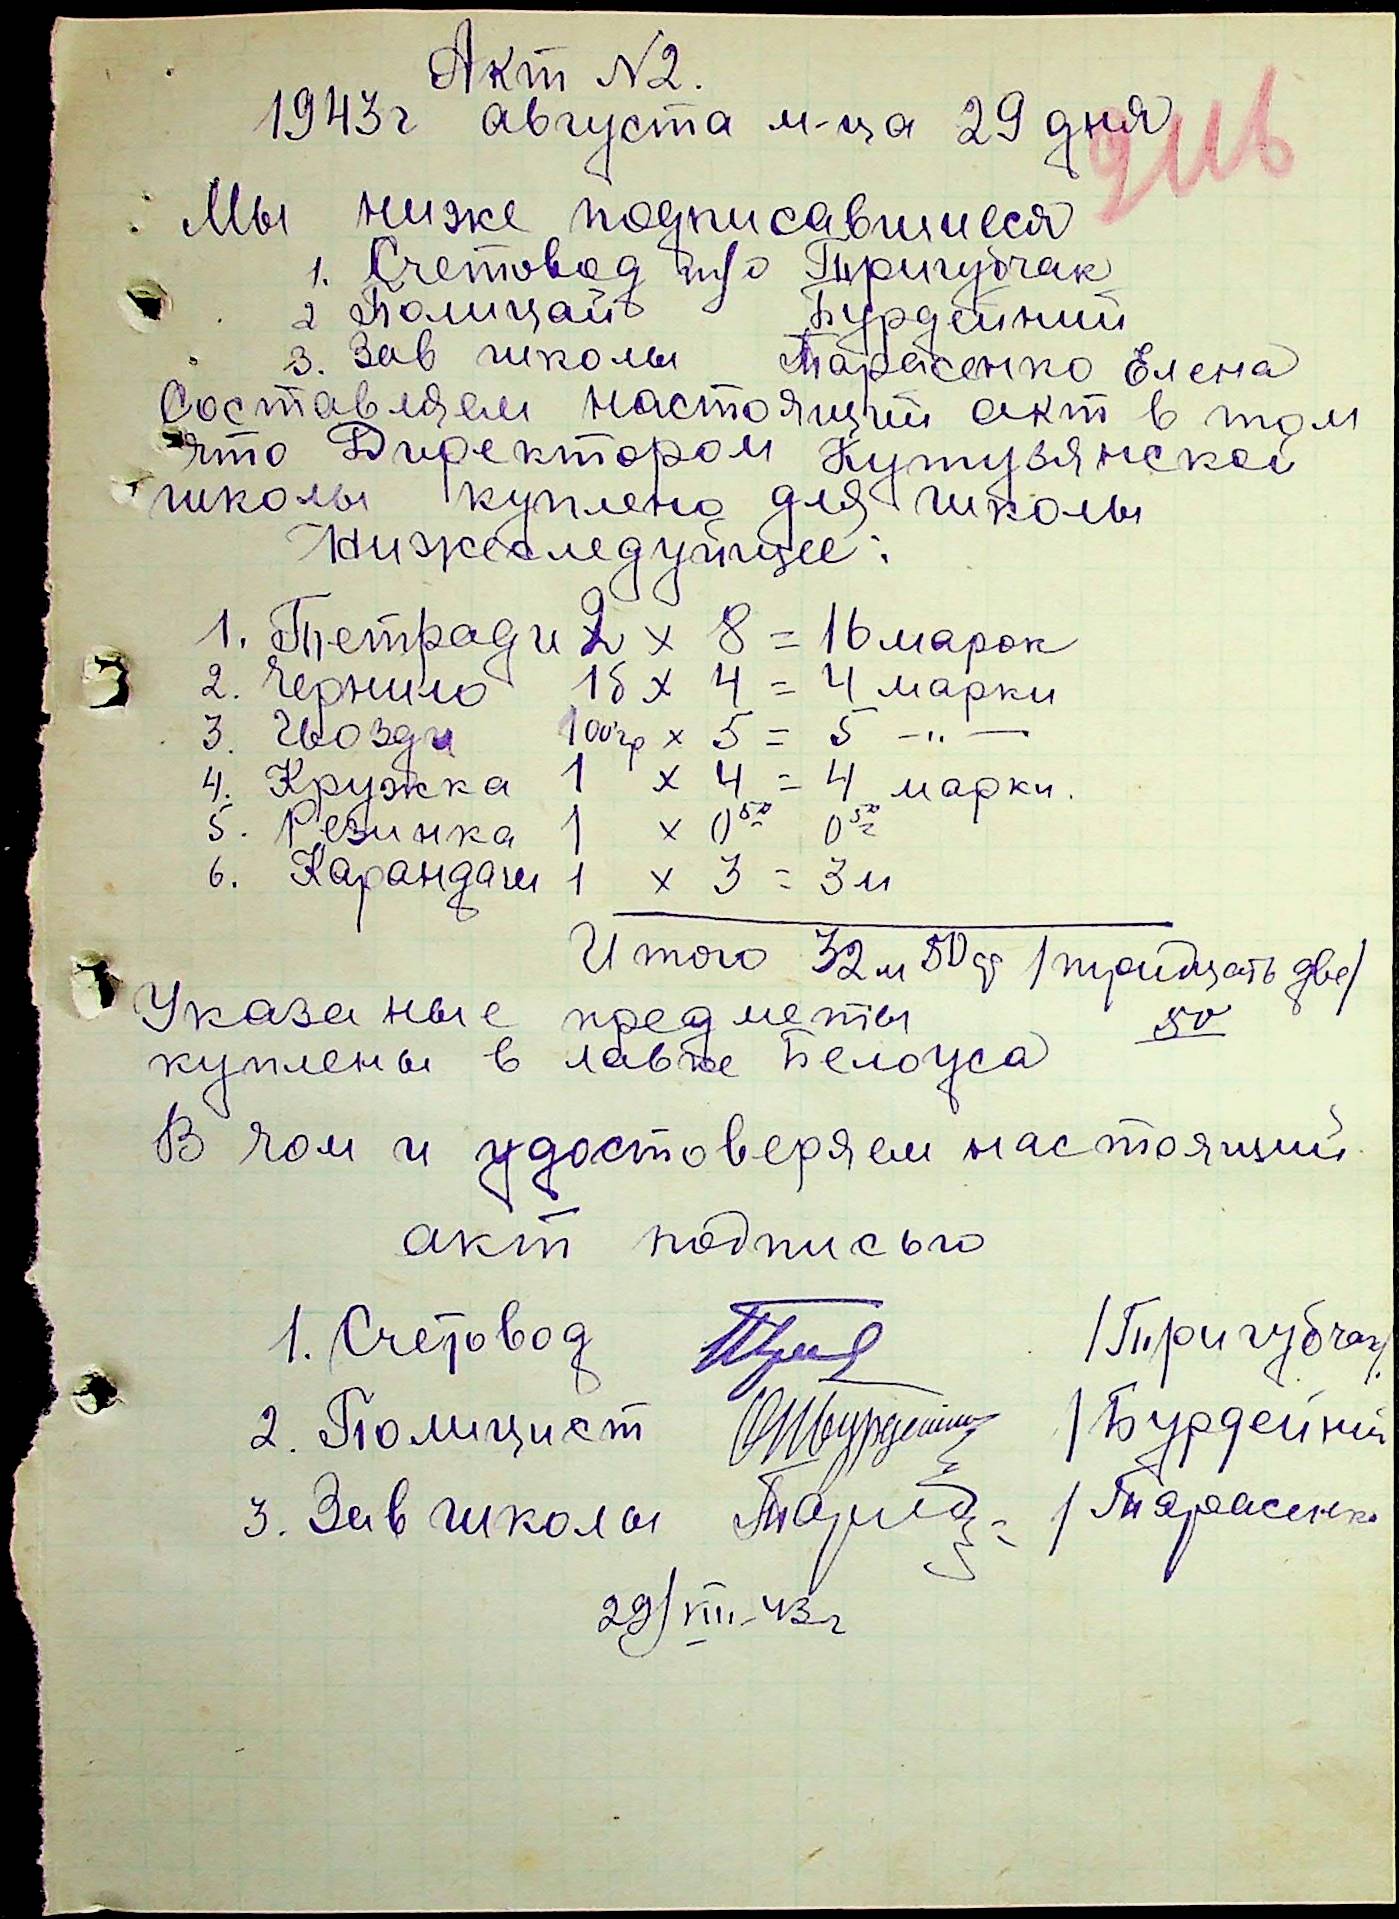 Акт N2.
1943г августа м-ца 29 дня
Мы ниже подписавшиеся
1. Счетовод Тригубчак
2 Полицай Бурдейний
3. Зав школы Тарасенко Елена
Составляем настоящий акт в том
что Директором Кутузянской
школы куплено для школы
Нижеследуйщее:
1. Тетради 2 х 8 = 16 марок
2. Чернило 1б х 4 = 4 марки
3. Гвозди 100гр х 5 = 5 -"-
4. Кружка 1 х 4 = 4 марки.
5. Резинка 1 х 0 50 0 50
6. Карандаш 1 х 3 = 3м
Итого 32м 50 /тридцать две/
50
Указаные предметы
куплены в лавке Белоуса
В чом и удостоверяем настоящий
акт подписью
1. Счетовод /Тригубчак/
2. Полицист /Бурдейний
3. Зав школы /Тарасенко
29/VIII-43г